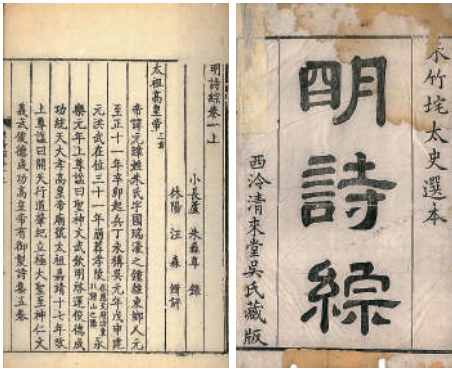 朱竹垞太史選本
明詩綜
西泠清來堂吳氏藏版
明詩綜卷一上
小長蘆 朱彝尊 錄
休陽 汪 森 緝評
太祖高皇帝三首
帝諱元璋姓朱氏字國瑞濠之鍾離東鄉人元
至正十一年辛卯起兵丁未稱吳元年戊申建
元洪武在位三十一年崩葬孝陵在應天府治東北鍾山之陽永
樂元年上尊諡曰聖神文武欽明啟運俊德成
功統天大孝高皇帝廟號太祖嘉靖十七年改
上尊諡曰開天行道肇紀立極大聖至神仁文
義武俊德成功高皇帝有御製詩集五卷